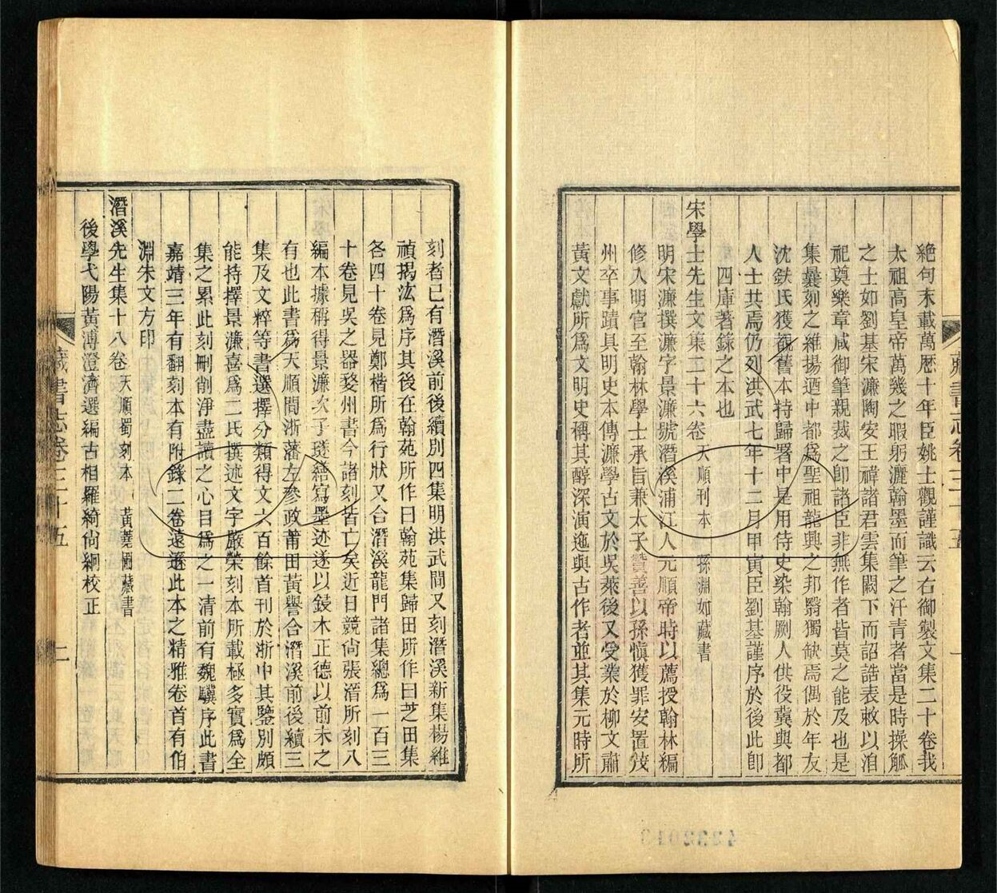 絶句末載萬厯十年臣姚士觀謹識云右御製文集二十卷我
太祖高皇帝萬幾之暇躬灑翰墨而筆之汗青者當是時操觚
之士如劉基宋濂陶安王禕諸君雲集闕下而詔誥表敕以洎
祀奠樂章咸御筆親裁之卽諸臣非無作者皆莫之能及也是
集曩刻之維揚迺中都爲聖祖龍興之邦翳獨缺焉偶於年友
沈鈇氏獲覩舊本持歸署中是用侍史染翰劂人供役冀與都
人士共焉仍列洪武七年十二月甲寅臣劉基謹序於後此卽
四庫著錄之本也
宋學士先生文集二十六卷 天順刊本 孫淵如藏書
明宋濂撰濂字景濂號潛溪浦江人元順帝時以薦授翰林編
修入明官至翰林學士承旨兼太子贊善以孫愼獲罪安置茂
州卒事蹟具明史本傳濂學古文於吳萊後又受業於柳文肅
黃文獻所爲文明史稱其醇深演迤與古作者並其集元時所
藏書志卷三十五
一
刻者已有潛溪前後續別四集明洪武間又刻潛溪新集楊維
禎揭汯爲序其後在翰苑所作曰翰苑集歸田所作曰芝田集
各四十卷見鄭楷所爲行狀又合潛溪龍門諸集總爲一百三
十卷見吳之器婺州書今諸刻皆亡矣近日競尙張溍所刻八
編本據稱得景濂次子璲繕寫墨迹遂以鋟木正德以前未之
有也此書爲天順間浙藩左參政莆田黃譽合潛溪前後續三
集及文粹等書選擇分類得文六百餘首刊於浙中其鑒別頗
能持擇景濂喜爲二氏撰述文字嚴榮刻本所載極多實爲全
集之累此刻刪削淨盡讀之心目爲之一清前有魏驥序此書
嘉靖三年有翻刻本有附錄二卷遠遜此本之精雅卷首有伯
淵朱文方印
潛溪先生集十八卷 天順蜀刻本 黃蕘圃藏書
後學弋陽黃溥澄濟選編古相羅綺尙絅校正
藏書志卷三十五
二